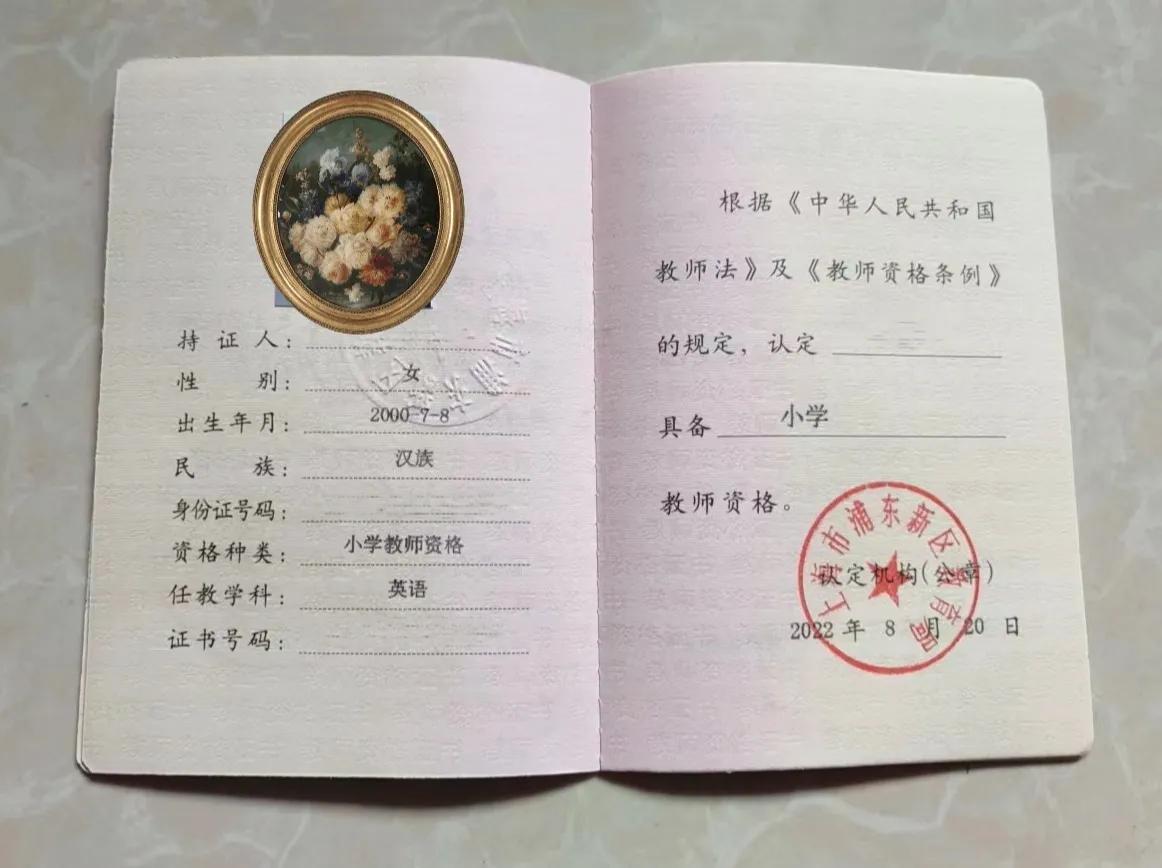 持证人：
性别：女
出生年月：2000-7-8
民族：汉族
身份证号码：
资格种类：小学教师资格
任教学科：英语
证书号码：
根据《中华人民共和国
教师法》及《教师资格条例》
的规定，认定
具备 小学
教师资格。
上海市浦东新区教育局
认定机构(公章)
2022年8月20日